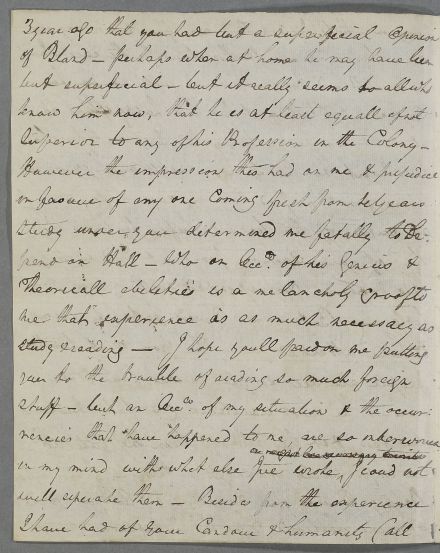 3 year ago that you had but a superficial Opinion
of Bland - perhaps when at home he may have been
but superficial - but it really seems to all who
know him now, that he is at least equall if not
Superior to any of his Profession in the Colony -
However the impression this had on me & prejudice
in favour of any one Coming fresh from years
study under you determined me fatally to De-
pend on Hall - who on Acct. of his Genius &
Theoricall abilities is a melancholy proof to
me that experience is as much necessary as
study & reading - I hope you'll pardon me putting
you to the trouble of reading so much foreign
stuff - but on Acct. of my situation & the occur-
rencies that have happened to me, are so interwoven
in my mind with what else I've wrote, I coud not
well seperate them - Besides from the experience
I have had of your Candour & humanity (all